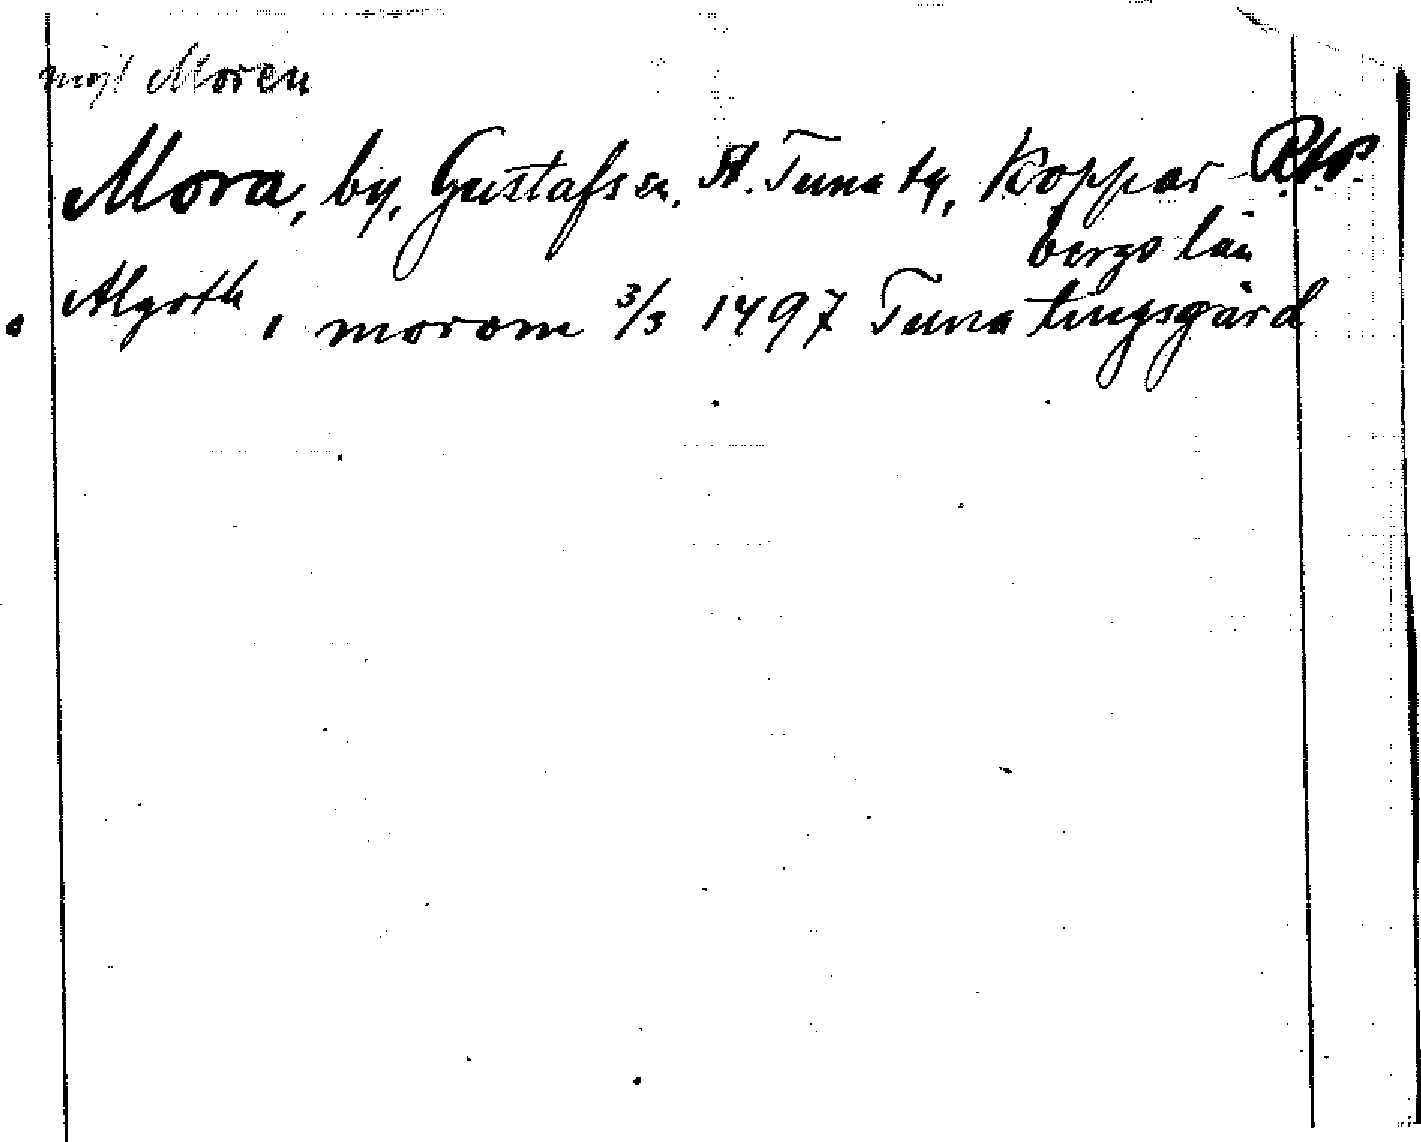 möjl Moren
Mora, by, Gustafs sn, St. Tuna tg, Koppar
bergs län
i morom 3/3 1497 Tuna tingsgård